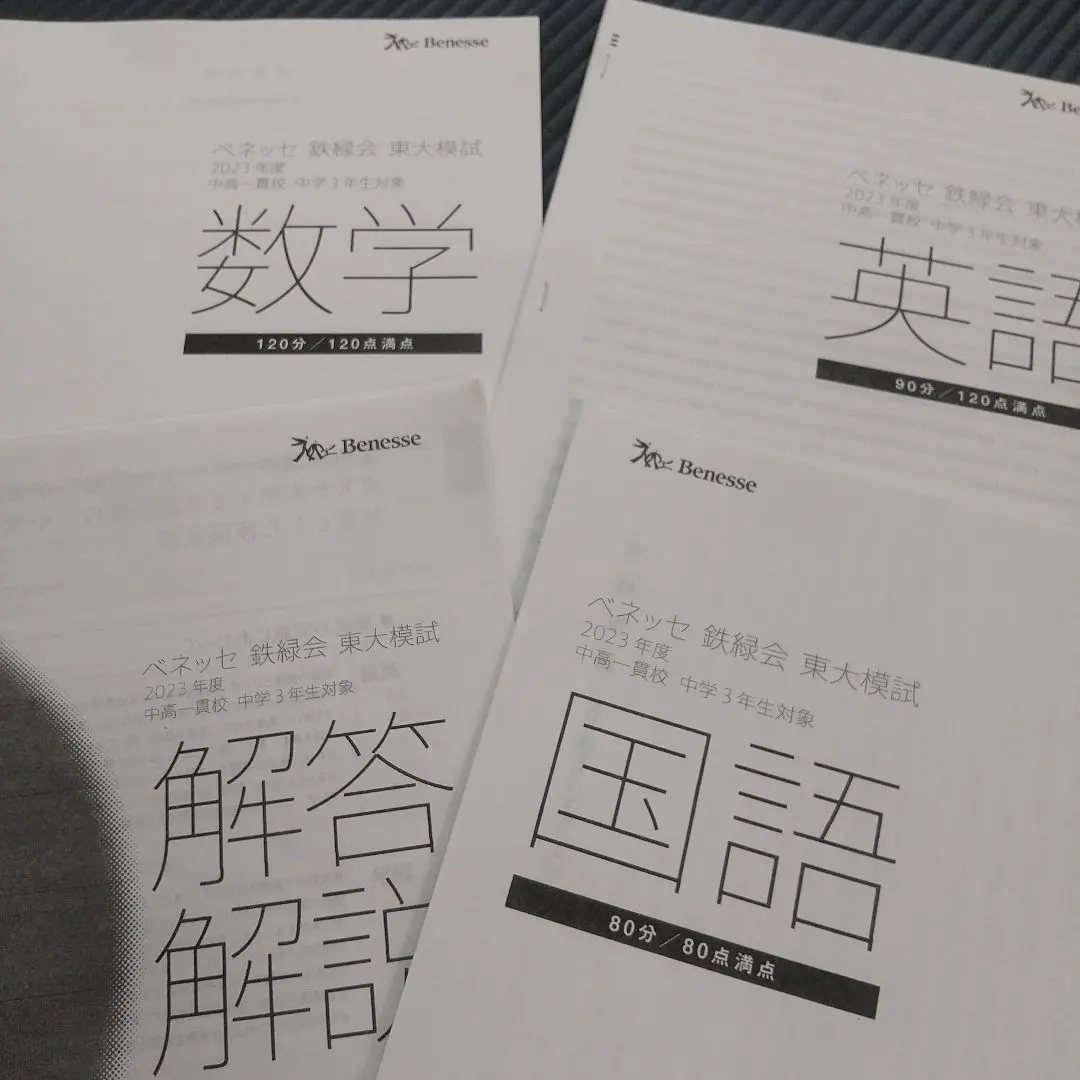 Benesse
ベネッセ 鉄緑会 東大模試
2023年度
中高一貫校 中学3年生対象
数学
120分／120点満点
Be
ベネッセ 鉄緑会 東大
2023年度
中高一貫校 中学3年生対象
英語
90分／120点満点
Benesse
ベネッセ 鉄緑会 東大模試
2023年度
中高一貫校 中学3年生対象
解答
解説
Benesse
ベネッセ 鉄緑会 東大模試
2023年度
中高一貫校 中学3年生対象
国語
80分／80点満点